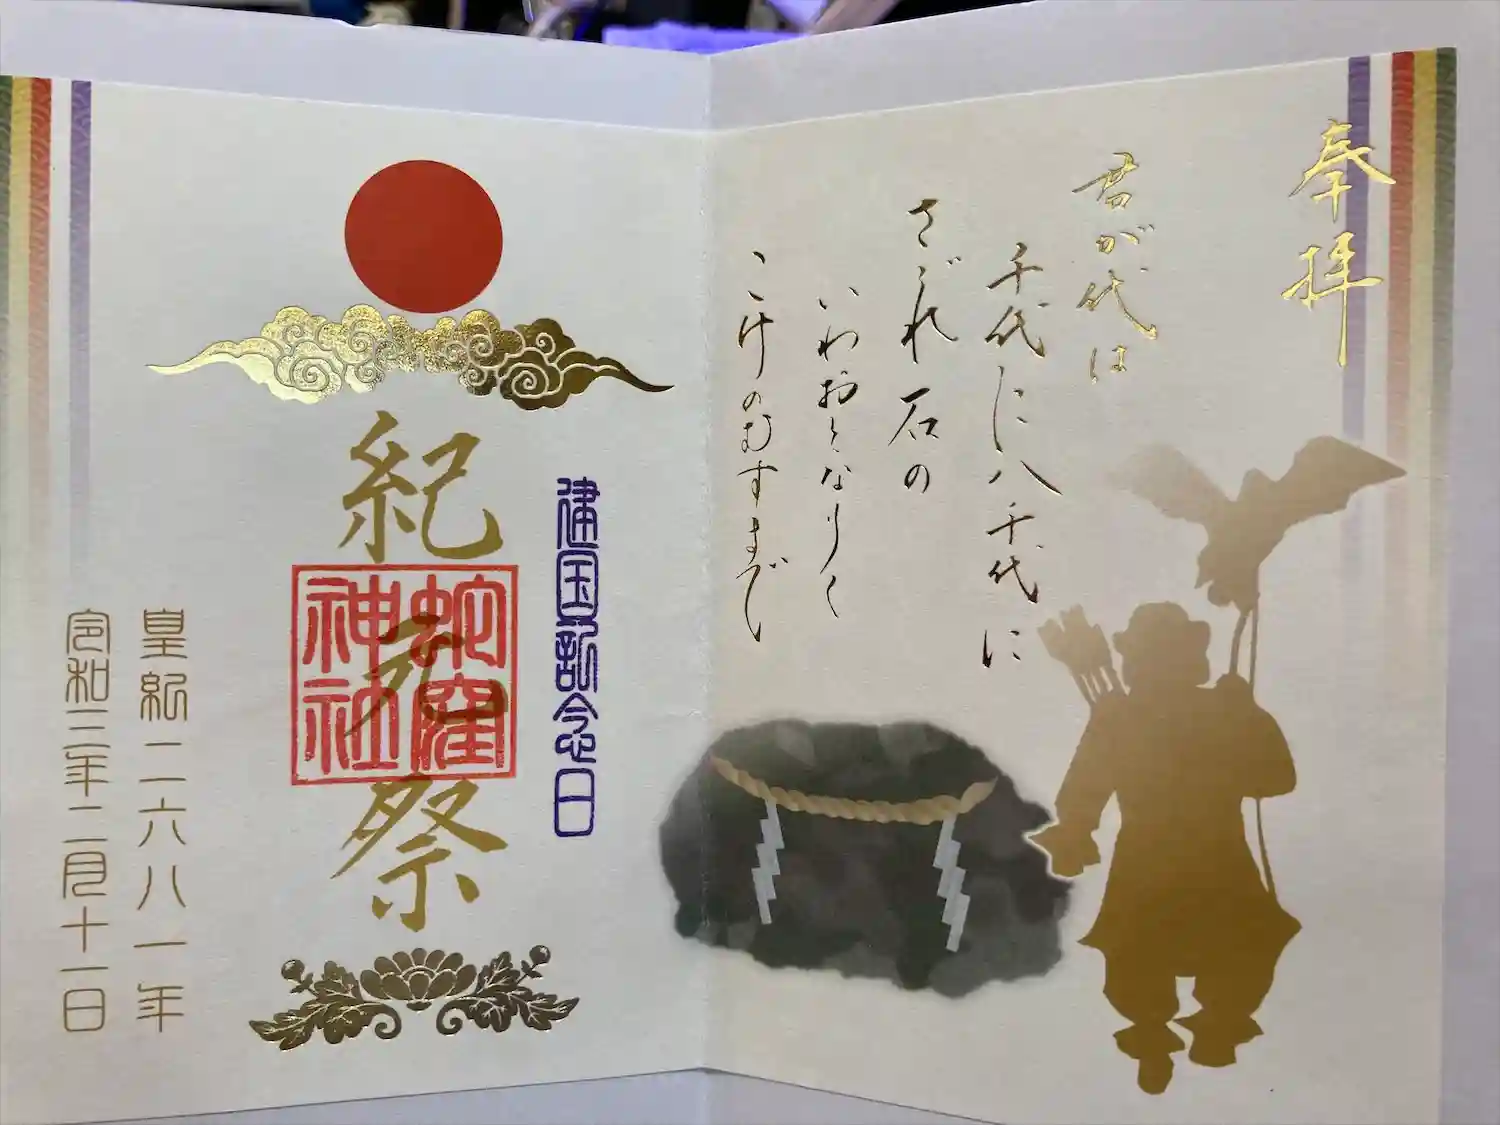 奉拝
君が代は
千代に八千代に
さゞれ石の
いわおとなりて
こけのむすまで
建国記念日
紀元祭
蛇窪神社
皇紀二六八一年
令和三年二月十一日